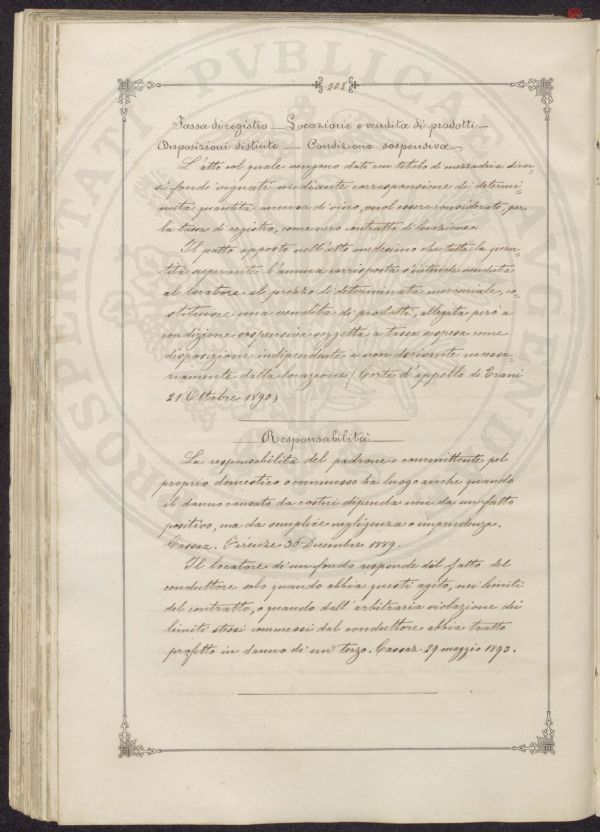 208
Tassa di registro — Locazione e vendita di prodotti —
Disposizioni distinte — Condizione sospensiva
L'atto col quale vengono dati con titolo di mezzadria diver-
si fondi vignati mediante corresponsione di determi-
nata quantità annua di vino, può essere considerato, per
la tassa di registro, come vero contratto di locazione.
Il patto apposto nell'atto medesimo che tutta la quan-
tità superante l'annua corrisposta s'intende venduta
al locatore al prezzo di determinata mercuriale, co-
stituisce una vendita di prodotti, allegata però a
condizione sospensiva soggetta a tassa sospesa come
disposizione indipendente e non derivante necessa-
riamente dalla locazione (Corte d'appello di Trani
21 Ottobre 1890)
Responsabilità
La responsabilità del padrone o committente pel
proprio domestico o commesso ha luogo anche quando
il danno causato da costui dipenda non da un fatto
positivo, ma da semplice negligenza o imprudenza.
Cassaz. Firenze 30 Decembre 1889.
Il locatore di un fondo responde del fatto del
conduttore solo quando abbia questi agito, nei limiti
del contratto, o quando dall'arbitraria violazione dei
limiti stessi commessi dal conduttore abbia tratto
profitto in danno di un terzo. Cassaz. 29 maggio 1893.
PROSPERITATI PVBLICAE AVGENDAE